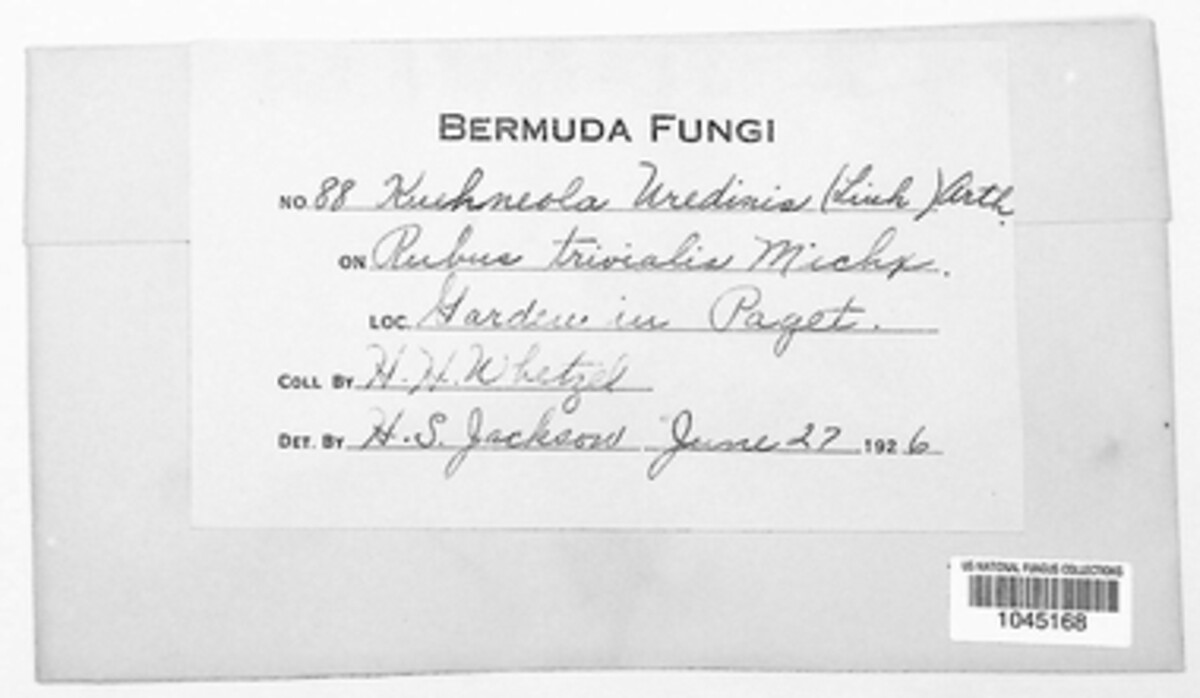 BERMUDA FUNGI
NO. 88 Kuehneola Uredinis (Link) Arth.
ON Rubus trivialis Michx.
LOC. Garden in Paget.
COLL BY H. H. Whetzel
DET. BY H. S. Jackson June 27 1926
US NATIONAL FUNGUS COLLECTIONS
1045168